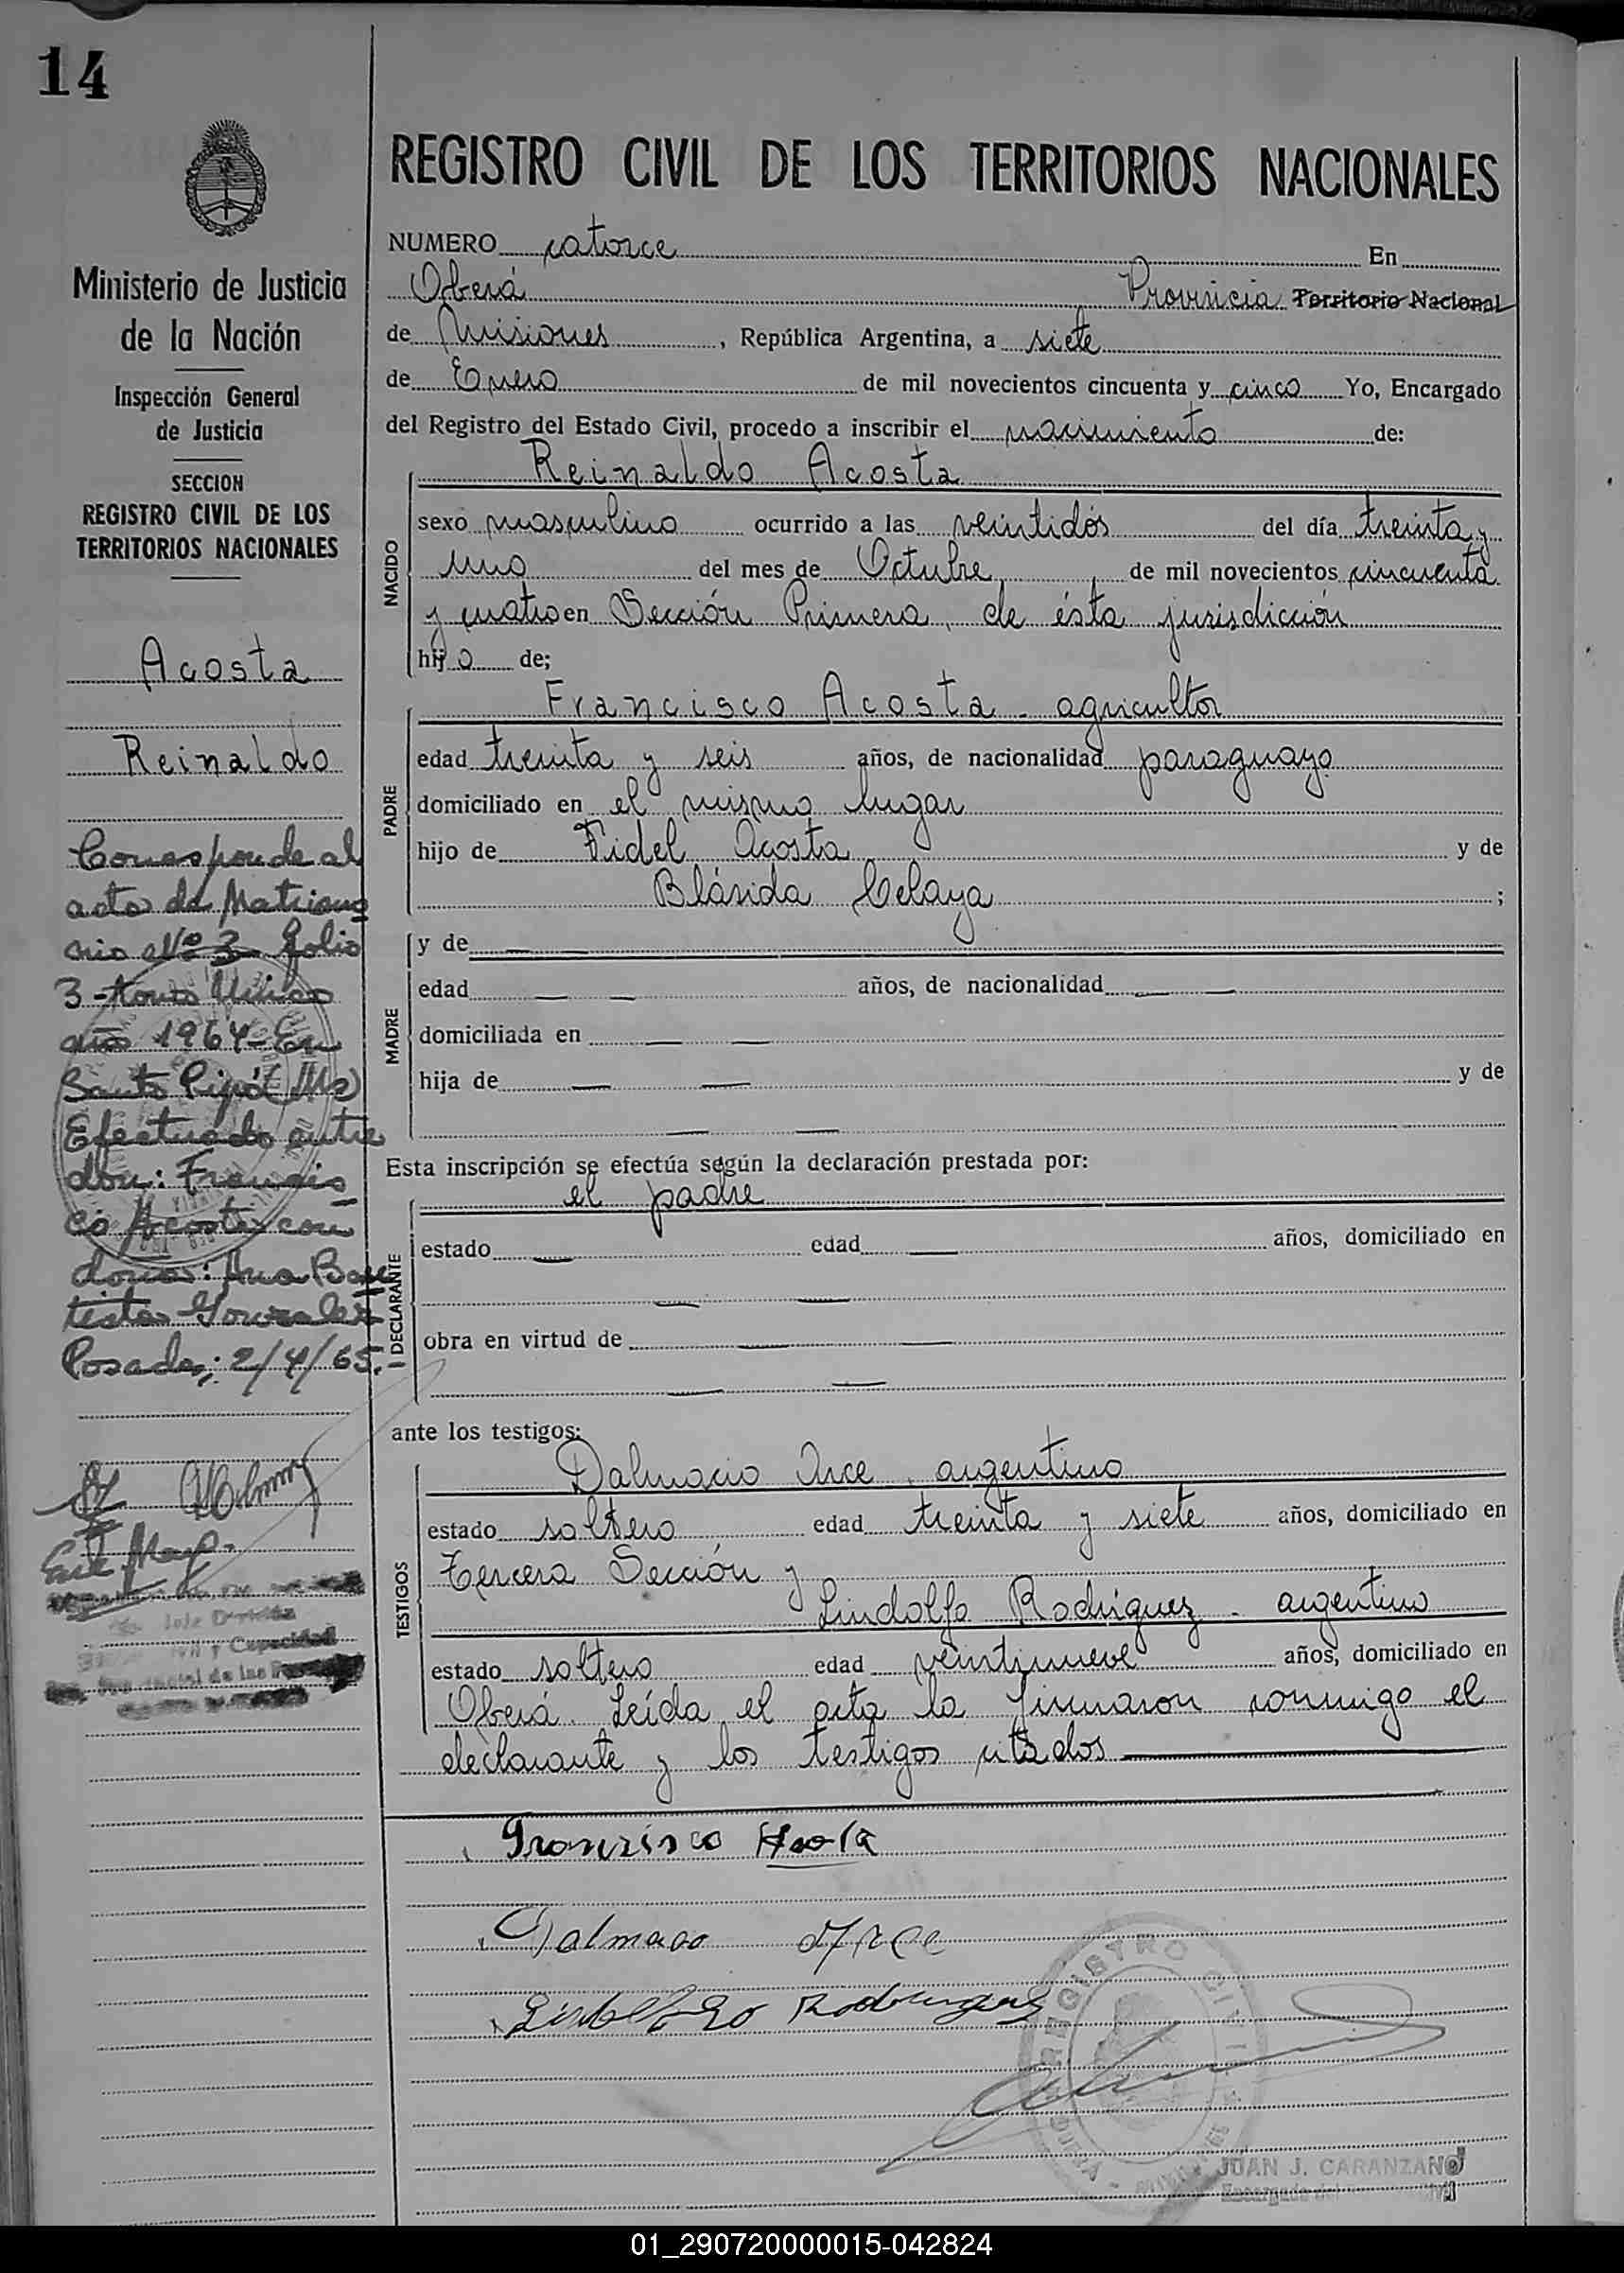 14
Ministerio de Justicia
de la Nación
Inspección General
de Justicia
SECCION
REGISTRO CIVIL DE LOS
TERRITORIOS NACIONALES
Acosta
Reinaldo
Corresponde al
acta de Matrimo
nio Nº 3 Folio
3 - Tomo Unico
año 1964 - En
Santo Pipó (Ms)
Efectuado entre
don: Francis
co Acosta con
doña: Ana Bau
tista Gonzalez
Posadas; 2/4/65.-
Jefe División
y Capacidad
de las
REGISTRO CIVIL DE LOS TERRITORIOS NACIONALES
NUMERO catorce En
Oberá Provincia Territorio Nacional
de Misiones, República Argentina, a siete
de Enero de mil novecientos cincuenta y cinco Yo, Encargado
del Registro del Estado Civil, procedo a inscribir el nacimiento de:
Reinaldo Acosta
NACIDO
sexo masculino ocurrido a las veintidós del día treinta y
uno del mes de Octubre, de mil novecientos cincuenta
y cuatro en Sección Primera, de ésta jurisdicción
hijo de;
Francisco Acosta - agricultor
PADRE
edad treinta y seis años, de nacionalidad paraguayo
domiciliado en el mismo lugar
hijo de Fidel Acosta y de
Blásida Celaya ;
MADRE
y de — —
edad — — años, de nacionalidad — —
domiciliada en — —
hija de — — y de
— —
Esta inscripción se efectúa según la declaración prestada por:
el padre
DECLARANTE
estado — edad — años, domiciliado en
— —
obra en virtud de — —
— —
ante los testigos:
Dalmacio Arce, argentino
TESTIGOS
estado soltero edad treinta y siete años, domiciliado en
Tercera Sección y
Lindolfo Rodriguez - argentino
estado soltero edad veintinueve años, domiciliado en
Oberá. Leída el acta la firmaron conmigo el
declarante y los testigos citados
Dalmacio Arce
REGISTRO CIVIL
OBERA - MISIONES
JUAN J. CARANZANO
Encargado del Civil
01_290720000015-042824